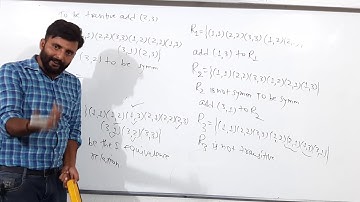 To be transitive add (2,3)
(1,1)(2,2)(3,3)(1,2)(2,1)(1,3)
(3,1)(2,3)}
(3,2) to be symm
{(1,1)(2,2)(3,3)(1,2)(2,1)(2,3)
be the
equivalence
R₁={(1,1)(2,2)(3,3)(1,2)(2,
add (1,3) to R₁
R₂={(1,1)(2,2)(3,3)(1,2)(2,1)(1,3)}
R₂ is not symm To be symm
add (3,1) to R₂
R₃={(1,1)(2,2)(3,3)(1,2)(2,1)(1,3)(3,1)}
R₃ is not transitive